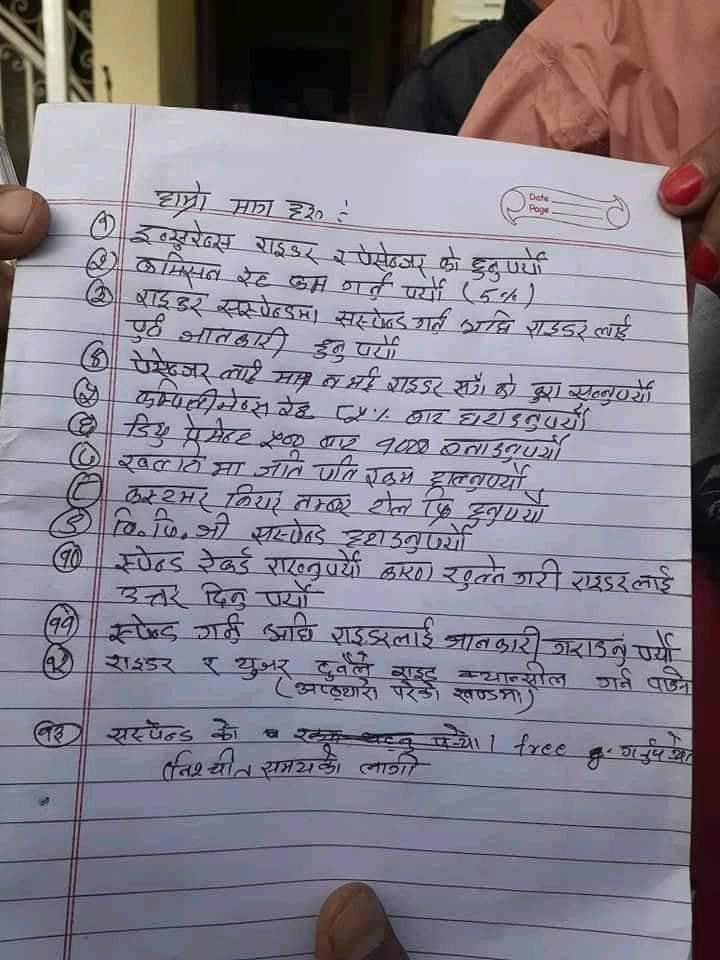 हाम्रो माग हरु :
Date
Page
१ इन्सुरेन्स राइडर र पेसेन्जर को हुनुपर्यो
२ कमिसन रेट कम गर्नु पर्यो (5%)
३ राइडर सस्पेन्डमा सस्पेन्ड गर्नु अघि राइडर लाई
पुर्व जानकारी हुनु पर्यो
४ पेसेन्जर लाई मात्र न भई राइडर संग को कुरा सुन्नुपर्यो
५ कम्प्लिमेन्स रेट ८५% बाट घटाउनुपर्यो
६ डियु पेमेन्ट ५०० बाट १००० बनाउनुपर्यो
७ खल्ती मा जति पनि रकम हाल्नुपर्यो
८ कस्टमर केयर नम्बर टोल फ्रि हुनुपर्यो
९ वि.पि.जी सस्पेन्ड हटाउनुपर्यो
१० स्पेन्ड रेकर्ड राख्नुपर्यो कारण खुलेत गरी राइडरलाई
उत्तर दिनु पर्यो
११ स्पेन्ड गर्नु अघि राइडरलाई जानकारी गराउनु पर्यो
१२ राइडर र युजर दुवैले राइड क्यान्सील गर्न पाउने
(अप्ठ्यारो परेको खण्डमा)
१३ सस्पेन्ड को पर्यो। free गर्नुपर्यो
(निश्चीत समयको लागी